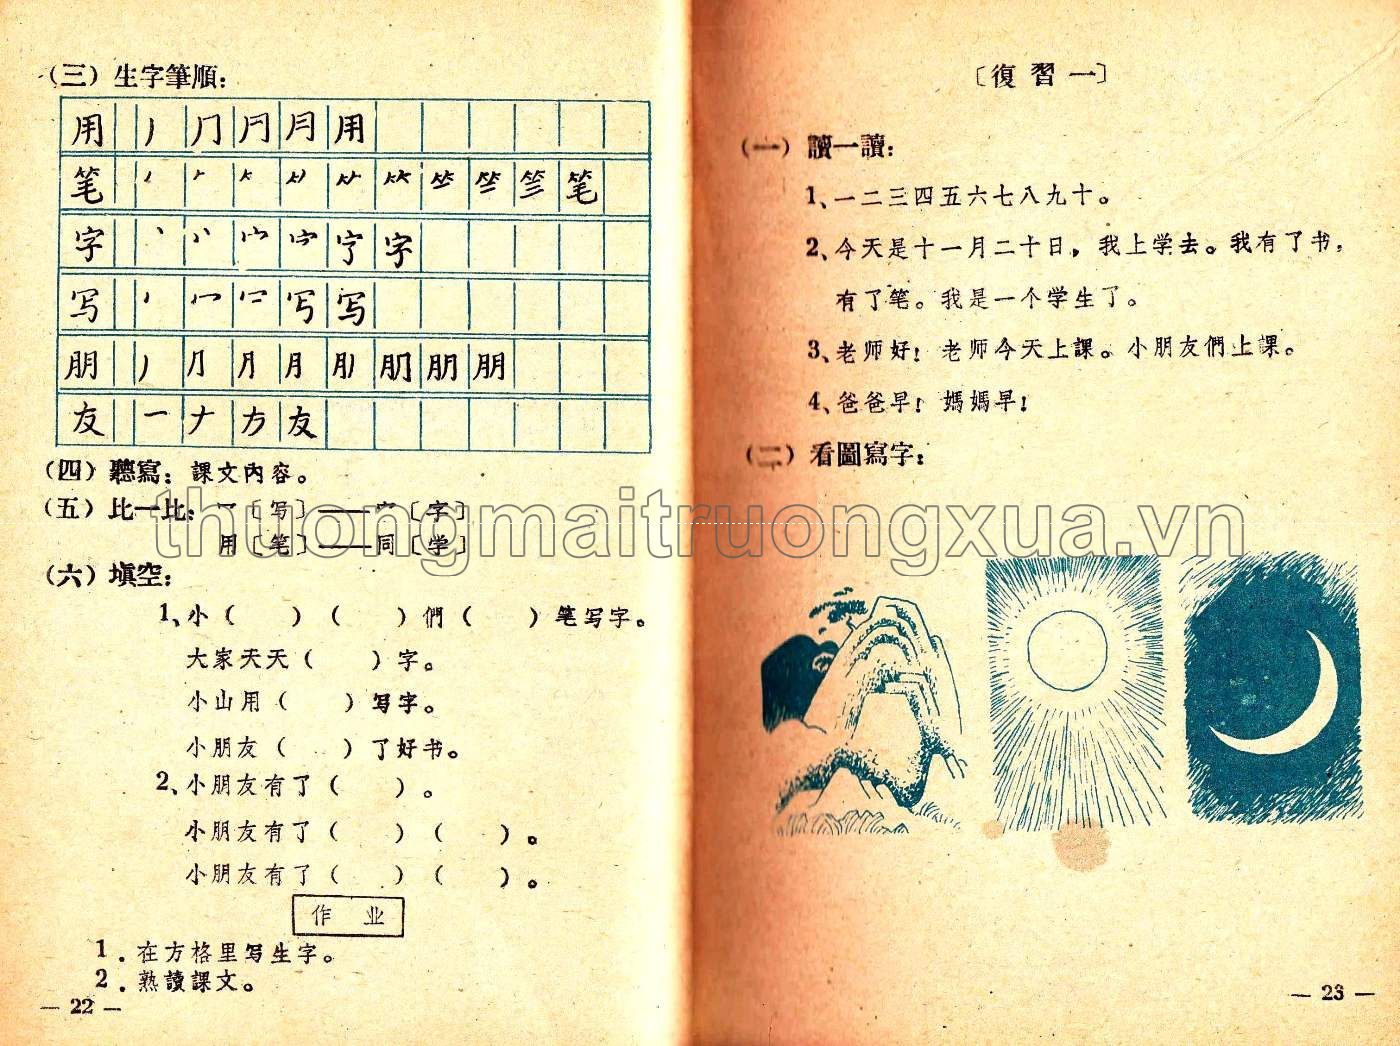 (三) 生字筆順:
用 丿 冂 月 月 用
笔 笔
字 丶 宀 字
写 冖 写 写
朋 丿 月 月 朋 朋
友 一 ナ 方 友
(四) 聽寫: 課文内容。
(五) 比一比: 冖〔写〕——宀〔字〕
用〔笔〕——同〔学〕
(六) 填空:
1、小 (    ) (    ) 們 (    ) 笔写字。
大家天天 (    ) 字。
小山用 (    ) 写字。
小朋友 (    ) 了好书。
2、小朋友有了 (    ) 。
小朋友有了 (    ) (    ) 。
小朋友有了 (    ) (    ) 。
作 业
1 . 在方格里写生字。
2 . 熟讀課文。
— 22 —
〔復 習 一〕
(一) 讀一讀:
1、一二三四五六七八九十。
2、今天是十一月二十日，我上学去。我有了书，
有了笔。我是一个学生了。
3、老师好! 老师今天上課。小朋友們上課。
4、爸爸早! 媽媽早!
(二) 看圖寫字:
— 23 —
thuongmaitruongxua.vn